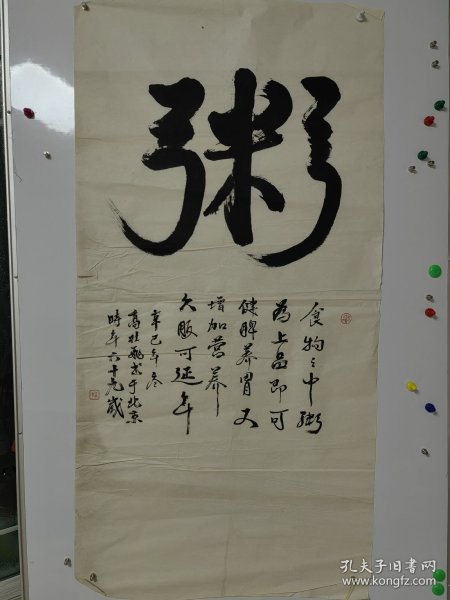 粥
食物之中粥
为上品即可
健脾养胃又
增加营养
久服可延年
辛巳年冬
高壮飞书于北京
時年六十九歲
孔夫子旧书网
www.kongfz.com